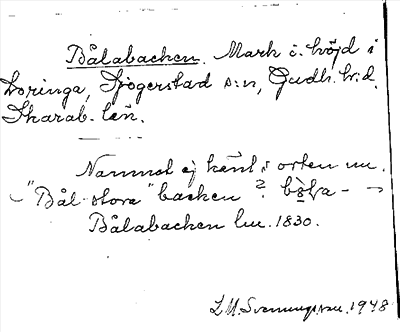 Bålabacken. Mark i. höjd i
Loringa, Sjogerstad s:n, Gudh. h:d.
Skarab. län.
Namnet ej känt i orten nu.
"Bål stora" backen? bo̱la-
Bålabacken lm. 1830.
L. M. Svenungsson. 1948